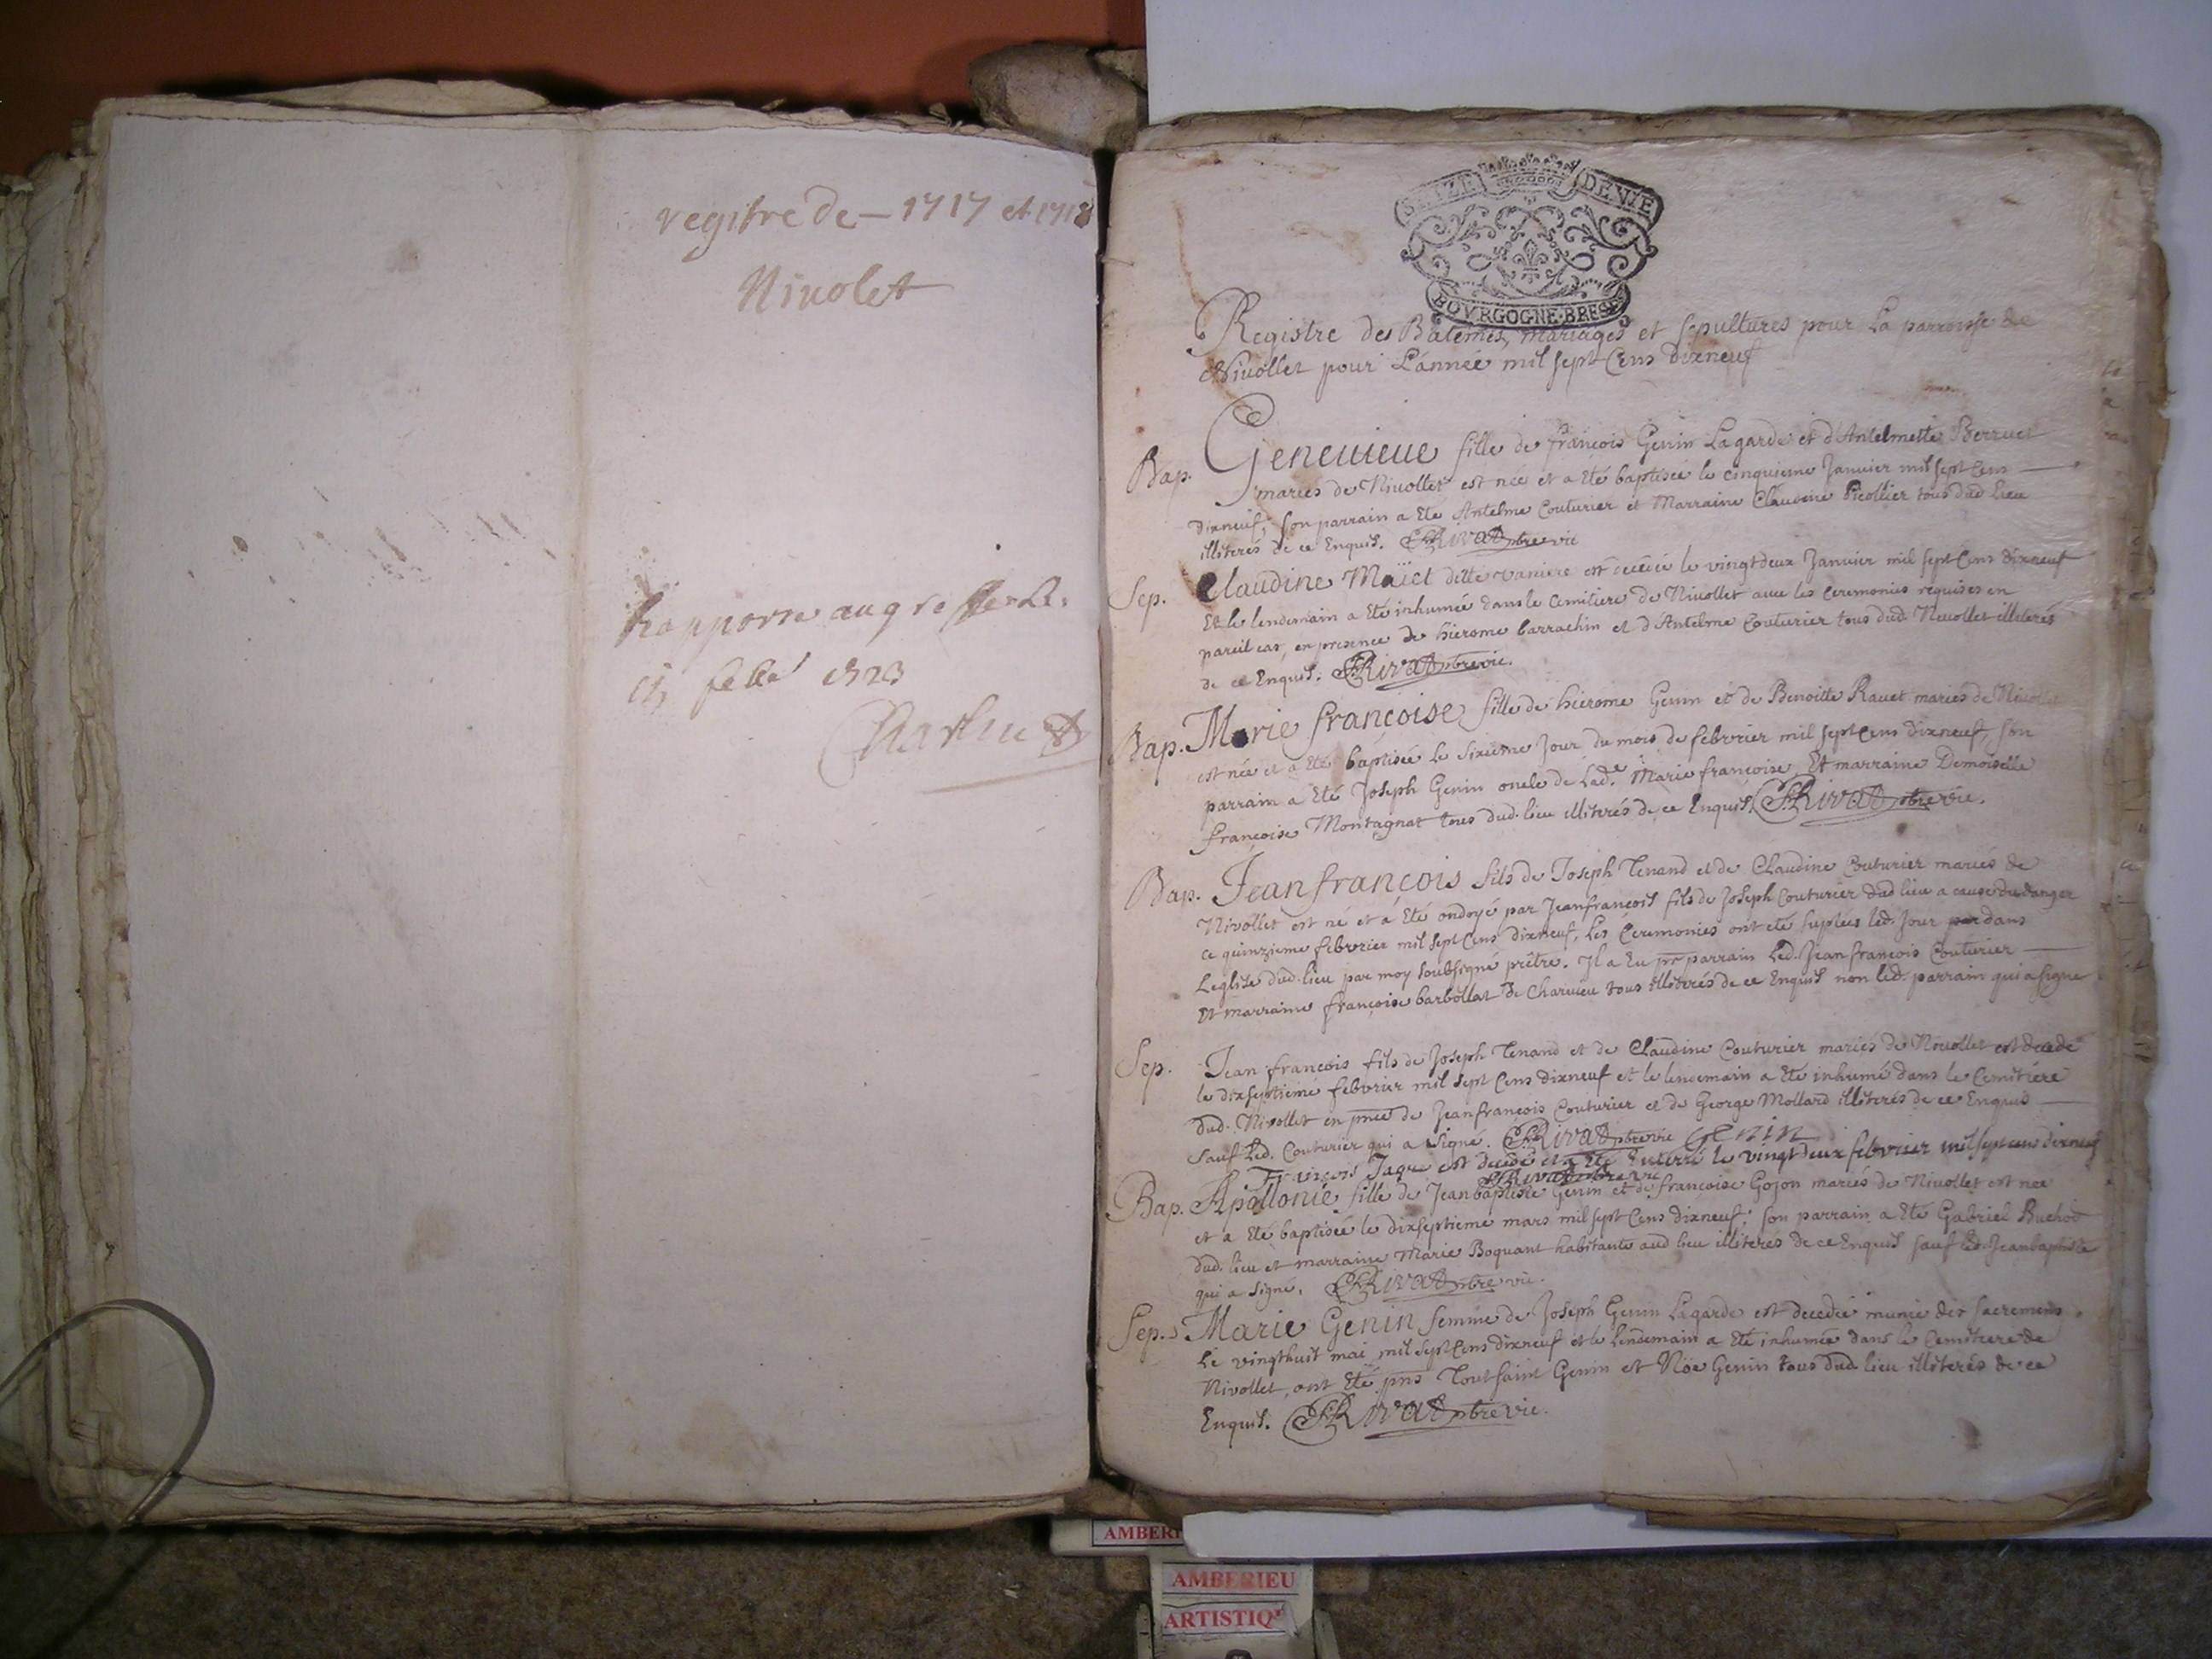 regitre de – 1717 et 1718
Nivolet
Rapporté au greffe le
1723
SEIZE DE.VIE
BOVRGOGNE·BRESSE
Registre des Batemes, Mariages et sepultures pour La parroisse de
Nivollet pour L'année mil sept Cens dixneuf
Bap. Genevieve fille de françois Genin Lagarde et d'Antelmette Berruet
mariés de Nivollet est née et a Eté baptisée le cinquieme Janvier mil sept Cens
dixneuf; son parrain a Eté Antelme Couturier et Marraine Claudine Picollier tous dud. Lieu
illiterés de ce Enquis. Rivat ptre vic
Sep. Claudine Maïet ditte est decedée le vingtdeux Janvier mil sept Cens dixneuf
Et le lendemain a Eté inhumée dans le Cemitiere de Nivollet avec les Ceremonies requises en
pareil cas, en presence de hierome barrachin et d'Antelme Couturier tous dud. Nivollet illiterés
de ce Enquis. Rivat ptre vic.
Bap. Marie françoise fille de hierome Genin et de Benoitte Ravet mariés de Nivollet
est née et a Eté baptisée le sixieme Jour du mois de febvrier mil sept Cens dixneuf, son
parrain a Eté Joseph Genin oncle de Lad.e Marie françoise Et marraine Demoiselle
françoise Montagnat tous dud. lieu illiterés de ce Enquis. Rivat ptre vic.
Bap. Jean françois fils de Joseph Tenand et de Claudine Couturier mariés de
Nivollet est né et a Eté ondoyé par Jeanfrancois fils de Joseph Couturier dud. lieu a cause du danger
ce quinzieme febvrier mil sept Cens dixneuf, les Ceremonies ont eté suplées led. Jour par dans
Leglise dud. lieu par moy soubsigné prêtre. Il a Eu pr parrain Led. Jean francois Couturier
Et marraine françoise barbollat de Charvieu tous illiterés de ce Enquis non led. parrain qui a signé
Sep. Jean francois fils de Joseph Tenand et de Claudine Couturier mariés de Nivollet est decedé
le dixseptieme febvrier mil sept Cens dixneuf et le lendemain a Eté inhumé dans le Cemitiere
dud. Nivollet en pnce de Jeanfrancois Couturier et de George Mollard illiterés de ce Enquis
sauf Led. Couturier qui a signé. Rivat ptre vic Genin
François Jaque est decedé et a Eté Enterré le vingt deux febvrier mil sept cens dixneuf
Rivat ptre vic
Bap. Apollonie fille de Jeanbaptiste Genin et de françoise Gojon mariés de Nivollet est née
et a Eté baptisée le dixseptieme mars mil sept Cens dixneuf; son parrain a Eté Gabriel Buchod
dud. lieu et marraine Marie Boquant habitante aud. lieu illiterés de ce Enquis sauf led. Jeanbaptiste
qui a signé. Rivat ptre vic.
Sep. Marie Genin femme de Joseph Genin Lagarde est decedée munie des sacremens
Le vingthuit mai mil sept Cens dixneuf et le lendemain a Eté inhumée dans le Cemitiere de
Nivollet, ont Eté pns Toutsaint Genin et Nöe Genin tous dud. lieu illiterés de ce
Enquis. Rivat ptre vic.
AMBERI
AMBERIEU
ARTISTIQ